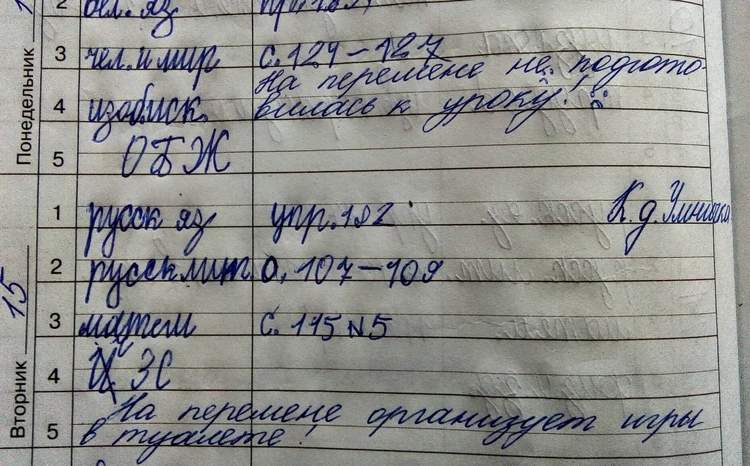 2 бел. яз. упр. 187
Понедельник
3 чел. и мир с. 124-127
На перемене не подгото-
4 изобиск. вилась к уроку!
5 ОБЖ
1 русск яз упр. 182 К.д. Умничка
2 русск лит с. 107-109
15
3 матем с. 115 №5
Вторник
4 ЗС
На перемене организует игры
5 в туалете!